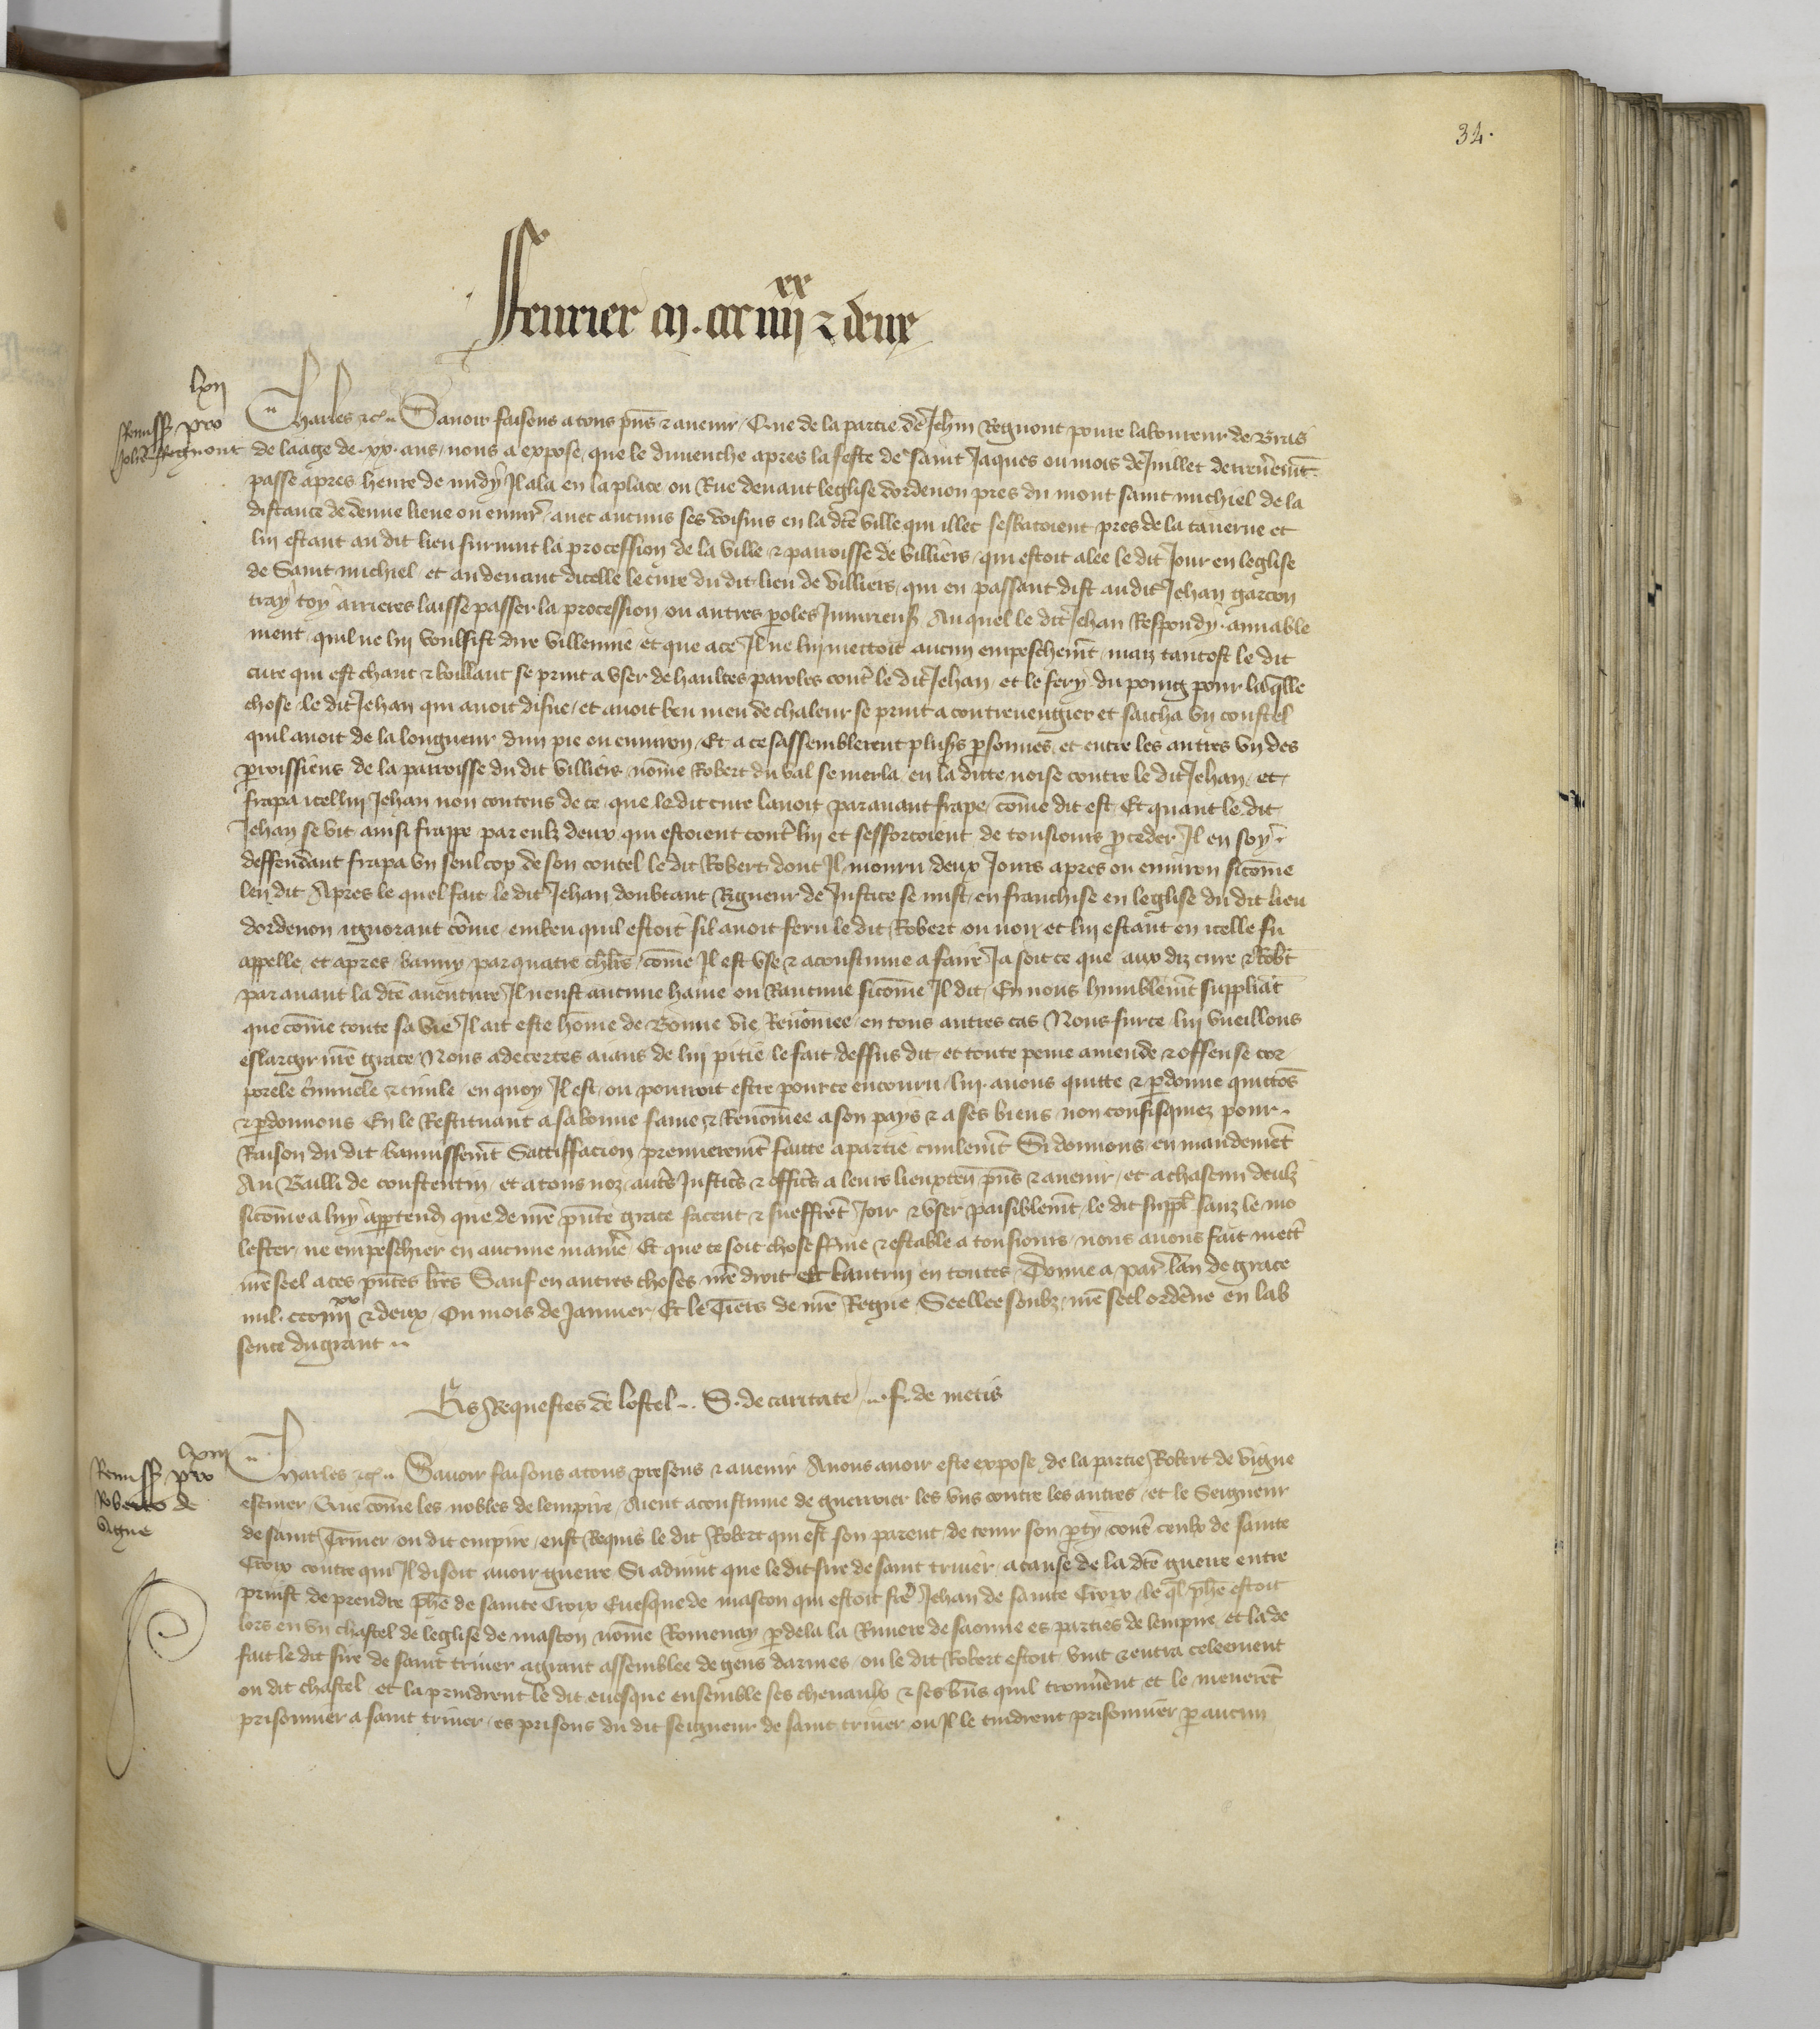 34.
Feurier m. ccc iiii xx & deux
lxii
Remiss pro
Johe Regnont
Charles &c. Sauoir faisons a tous pns & auenir Que de la partie de Jehan Regnont poure laboureur de bras
de laage de xx ans nous a expose que le dimenche apres la feste de saint Jaques ou mois de Juillet derrenemt
passe apres heure de midy Il ala en la place ou Rue deuant leglise dordenon pres du mont saint michiel de la
distance de demie lieue ou enuir auec aucuns ses voisins en la dce ville qui illec sesbatoient pres de la tauerne et
lui estant au dit lieu suruint la procession de la ville & parroisse de villiers qui estoit alee le dit Jour en leglise
de Saint michiel et au deuant dicelle le cure du dit lieu de villiers qui en passant dist au dit Jehan garcon
tray toy arrieres laisse passer la procession ou autres poles Iniurieus Au quel le dit Jehan Respondy amiable
ment quil ne lui voulsist dire villennie et que a ce Il ne lui mettoit aucun empeschemt maiz tantost le dit
cure qui est chaut & boillant se print a vser de haultes paroles cont le dit Jehan et le fery du poing pour laqlle
chose le dit Jehan qui auoit disne et auoit beu meu de chaleur se print a contreuengier et sacha vn coustel
quil auoit de la longueur dun pie ou enuiron Et a ce sassemblerent plus psonnes et entre les autres vn des
proissiens de la parroisse du dit villiers nome Robert du val se merla en la dicte noise contre le dit Jehan et
frapa icellui Jehan non contens de ce que le dit cure lauoit parauant frape come dit est Et quant le dit
Jehan se vit ainsi frappe par eulx deux qui estoient cont lui et sefforcoient de tousiours pceder Il en soy
deffendant frapa vn seul cop de son coutel le dit Robert dont Il mouru deux Jours apres ou enuiron sicome
len dit Apres le quel fait le dit Jehan doubtant Rigueur de Justice se mist en franchise en leglise du dit lieu
dordenon ignorant come embeu quil estoit sil auoit feru le dit Robert ou non et lui estant en icelle fu
appelle et apres banny par quatre come Il est vse & acoustume a faire Ja soit ce que aux diz cure & Robt
parauant la dce auenture Il neust aucune haine ou Rancune sicome Il dit En nous humblemt suppliat
que come toute sa vie Il ait este home de bonne vie Renomee en tous autres cas Nous sur ce lui vueillons
eslargir nre grace Nous adecertes aians de lui pitie le fait dessus dit et toute peine amende & offense cor
porele criminele & ciuile en quoy Il est ou pourroit estre pour ce encouru lui auons quitte & pdonne quictos
& pdonnons En le Restituant a sa bonne fame & Renomee a son pays & a ses biens non confisquez pour
Raison du dit bannissemt Satiffacion premieremt faicte a partie ciuilemt Si donnons en mandemet
Au Bailli de constentin et a tous noz autres Justic & offic a leurs lieuxten pns & auenir et a chascun deulx
sicome a luy apptendra que de nre pnte grace facent & sueffret Joir & vser paisiblemt le dit suppl sanz le mo
lester ne empeschier en aucune manie Et que ce soit chose ferme & estable a tousiours nous auons fait mett
nre seel a ces pntes lres Sauf en autres choses nre droit et lautrui en toutes Donne a par lan de grace
mil ccc iiii xx & deux Ou mois de Januier Et le Tiers de nre Regne Seellee soubz nre seel ordene en lab
sence du grant
Es Requestes de lostel S. de caritate f. de metis
lxiii
Remiss pro
Roberto de
vigne
Charles &c. Sauoir faisons a tous presens & auenir A nous auoir este expose de la partie Robert de vigne
escuier Que come les nobles de lempire Aient acoustume de guerroier les vns contre les autres et le Seigneur
de saint Triuier ou dit empire eust Requis le dit Robert qui est son parent de tenir son pty cont ceulx de sainte
Croix contre qui Il disoit auoir guerre Si aduint que le dit sire de saint triuier a cause de la dce guerre entre
prinst de prendre phe de sainte Croix Euesque de mascon qui estoit fre Jehan de sainte Croix le ql phe estoit
lors en vn chastel de leglise de mascon nome Romenay p dela la Riuiere de saonne es parties de lempire et la de
fait le dit sire de saint triuier a grant assemblee de gens darmes ou le dit Robert estoit vint & entra celeement
ou dit chastel et la prindrent le dit euesque ensemble ses cheuaulx & ses bns quil trouuerent et le meneret
prisonnier a saint triuier es prisons du dit seigneur de saint triuier ou Il le tindrent prisonnier p aucun